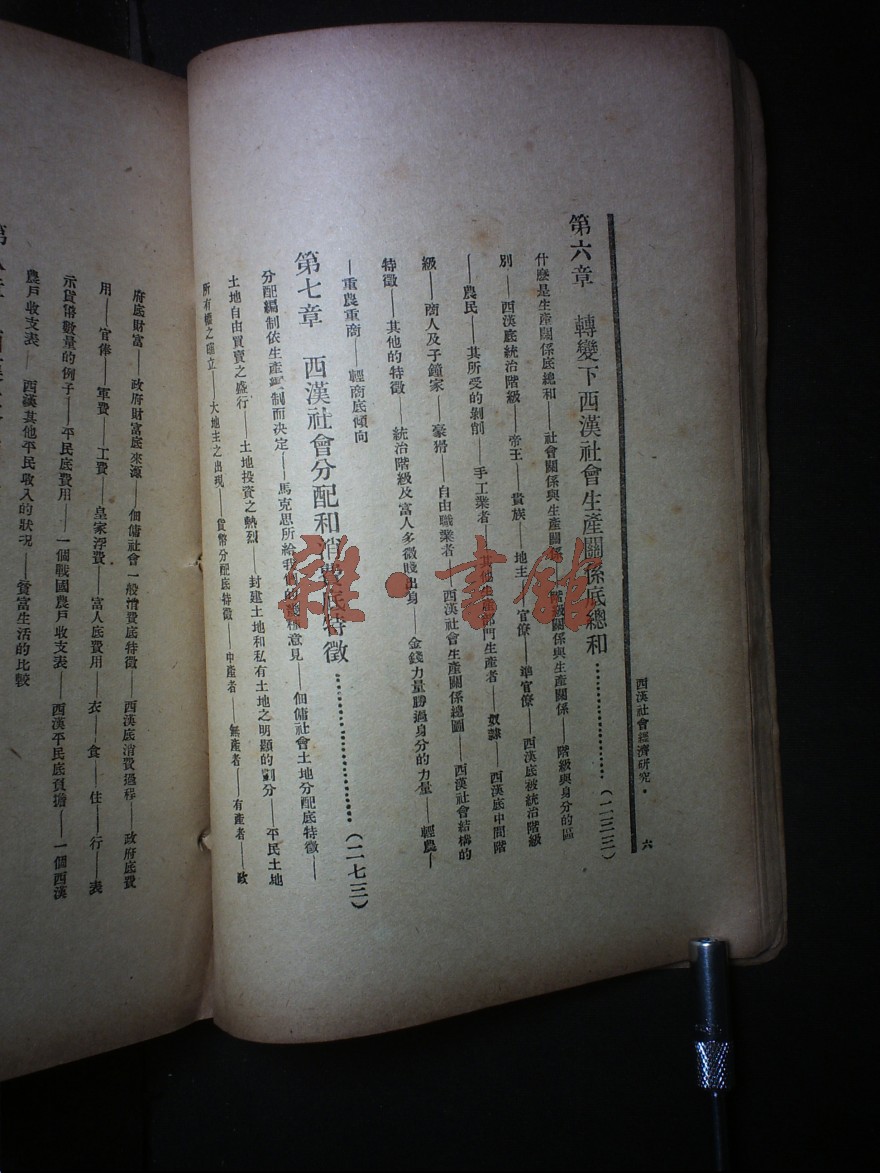 西漢社會經濟研究・
六
第六章　轉變下西漢社會生產關係底總和…………………(二三三)
什麽是生產關係底總和——社會關係與生產關係——階級關係與生產關係——階級與身分的區
別——西漢底統治階級——帝王——貴族——地主——官僚——準官僚——西漢底被統治階級
——農民——其所受的剝削——手工業者——其他生產部門生產者——奴隸——西漢底中間階
級——商人及子錢家——豪猾——自由職業者——西漢社會生產關係總圖——西漢社會結構的
特徵——其他的特徵——統治階級及富人多微賤出身——金錢力量勝過身分的力量——輕農—
—重農重商——輕商底傾向
第七章　西漢社會分配和消費底特徵…………………(二七三)
分配編制依生產編制而决定——馬克思所給我們的幾種意見——佃傭社會土地分配底特徵——
土地自由買賣之盛行——土地投資之熱烈——封建土地和私有土地之明顯的劃分——平民土地
所有權之確立——大地主之出現——貨幣分配底特徵——中產者——無產者——有產者——政
府底財富——政府財富底來源——佃傭社會一般消費底特徵——西漢底消費過程——政府底費
用——官俸——軍費——工費——皇家浮費——富人底費用——衣——食——住——行——表
示貨幣數量的例子——平民底費用——一個戰國農戶收支表——西漢平民底負擔——一個西漢
農戶收支表——西漢其他平民收入的狀况——貧富生活的比較
雜・書館